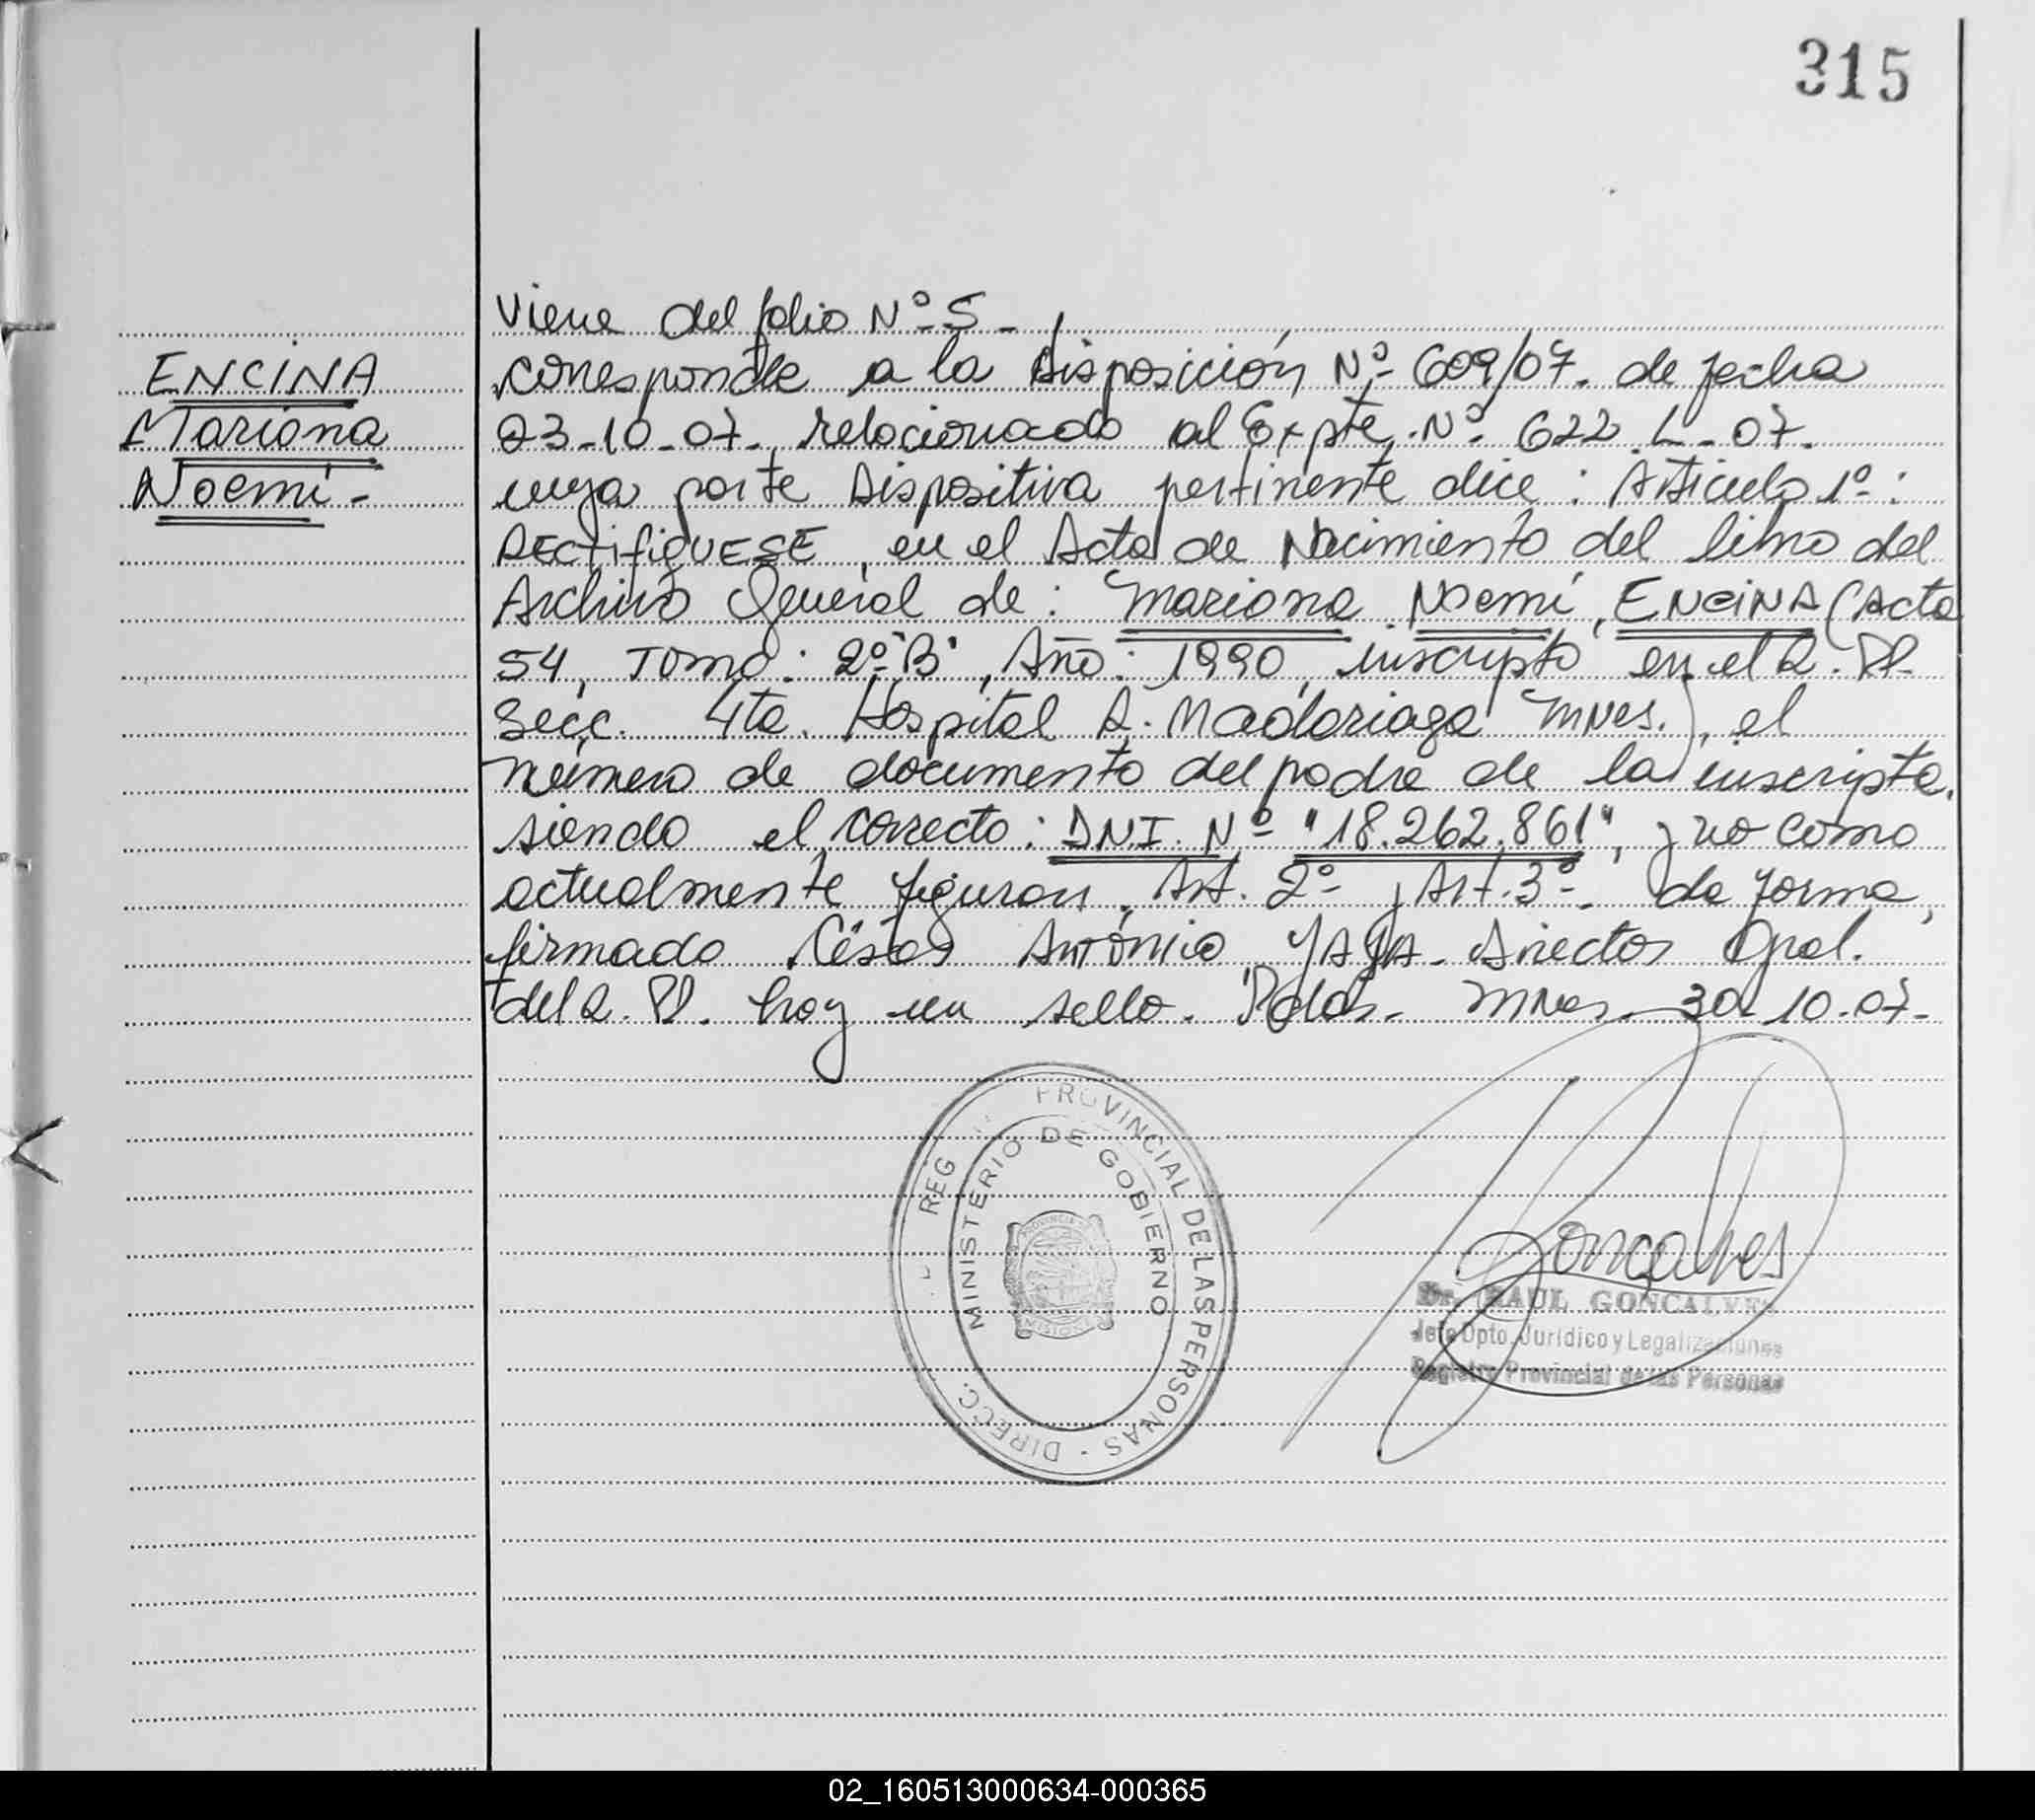 315
Viene del folio Nº 5 -
ENCINA
Mariana
Noemí -
corresponde a la Disposición Nº 609/07. de fecha
23-10-07, relacionado al Expte. Nº 622 L-07.
cuya parte Dispositiva pertinente dice: Artículo 1º:
RECTIFIQUESE, en el Acta de Nacimiento del libro del
Archivo General de: Mariana Noemí, ENCINA (Acta
54, Tomo: 2º "B", Año: 1990, inscripto en el R. P.
Secc. 4ta. Hospital R. Madariaga Mnes.), el
número de documento del padre de la inscripta,
siendo el correcto: D.N.I. Nº "18.262.861", y no como
actualmente figuran. Art. 2º y Art. 3º de forma,
firmado César Antonio Director Gral.
del R. P. hay un sello. Pdas. Mnes. 30-10-07-
DIRECC. REG PROVINCIAL DE LAS PERSONAS -
MINISTERIO DE GOBIERNO
PROVINCIA
MISIONES
Gonçalves
Dr. RAUL GONCALVES
Jefe Dpto. Jurídico y Legalizaciones
Registro Provincial de las Personas
02_160513000634-000365